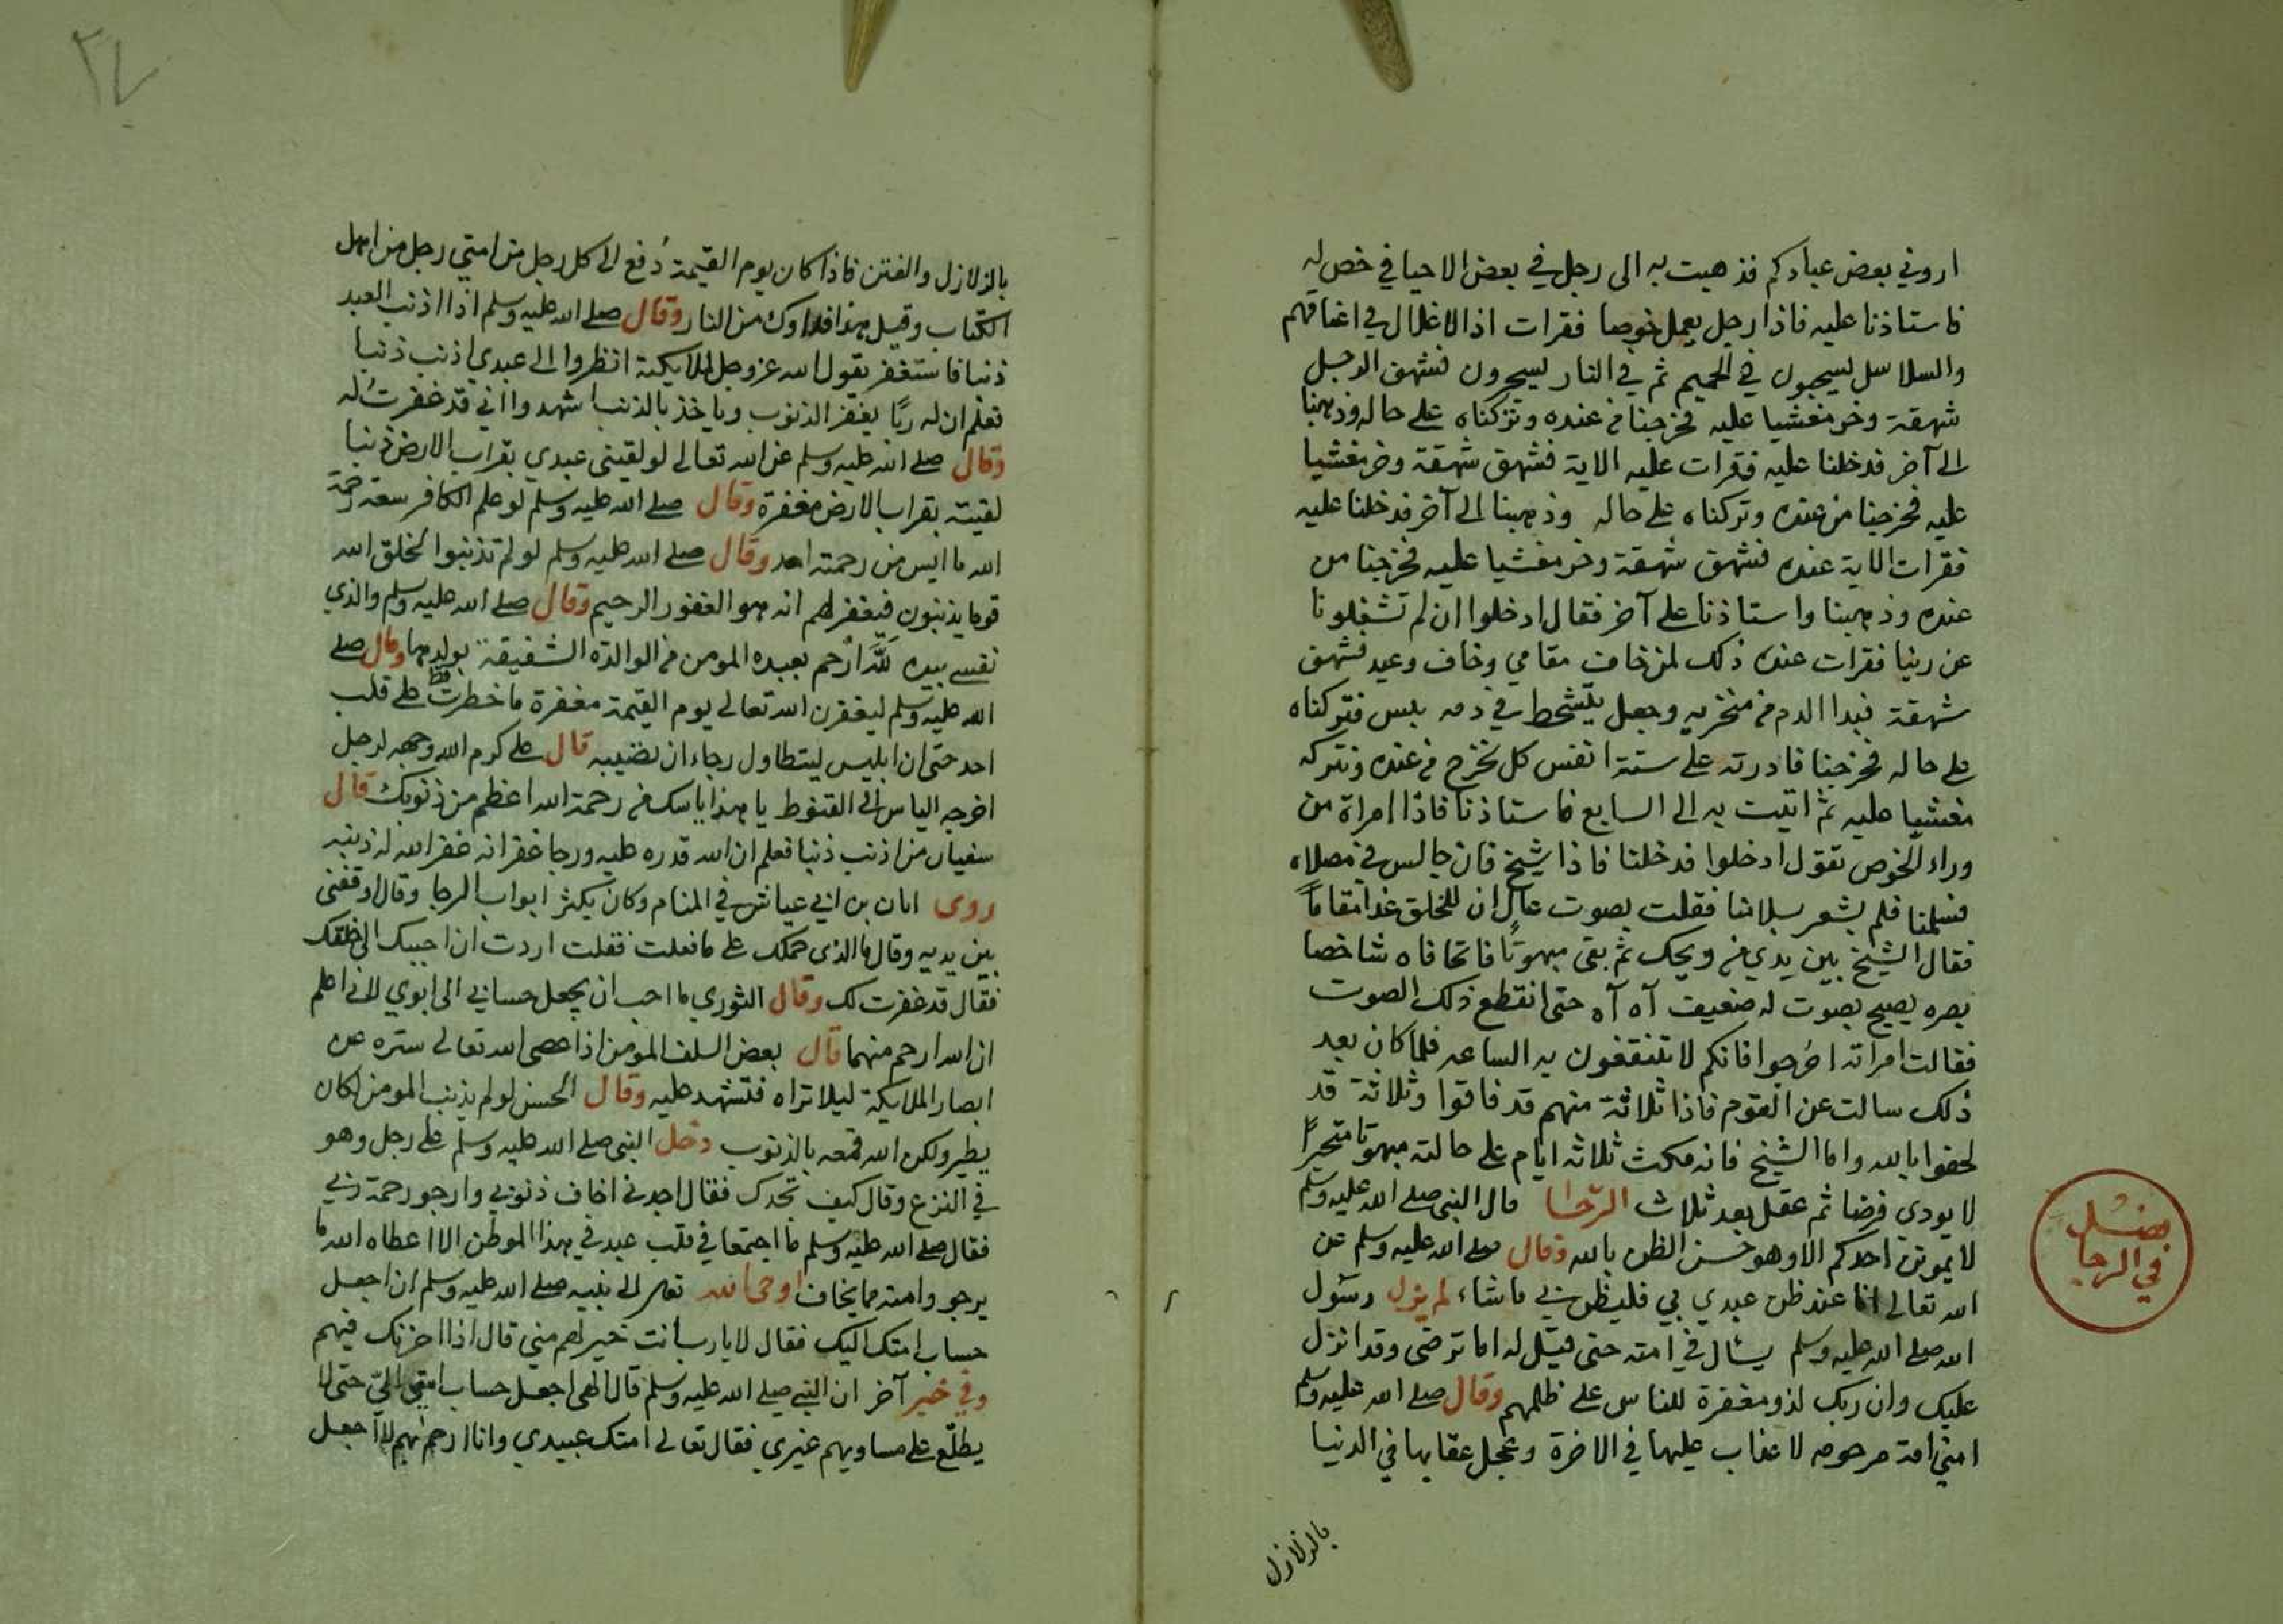 اروني بعض عبادكم فذهبت به الى رجل في بعض الاحيا في خص له
فاستاذنا عليه فاذا رجل يعمل خوصا فقرات اذ الاغلال في اعناقهم
والسلاسل يسحبون في الحميم ثم في النار يسجرون فشهق الرجل
شهقة وخر مغشيا عليه فخرجنا من عنده وتركناه على حاله وذهبنا
الى آخر فدخلنا عليه فقرات عليه الاية فشهق شهقة وخر مغشيا
عليه فخرجنا من عنده وتركناه على حاله وذهبنا الى آخر فدخلنا عليه
فقرات الاية عنده فشهق شهقة وخر مغشيا عليه فخرجنا من
عنده وذهبنا واستاذنا على آخر فقال ادخلوا ان لم تشغلونا
عن ربنا فقرات عنده ذلك لمن خاف مقامي وخاف وعيد فشهق
شهقة فبدا الدم من منخريه وجعل يتشحط في دمه يبس فتركناه
على حاله فخرجنا فادرته على ستة انفس كل نخرج من عنده ونتركه
مغشيا عليه ثم اتيت به الى السابع فاستاذنا فاذا امراة من
وراء الخوص تقول ادخلوا فدخلنا فاذا شيخ فان جالس في مصلاه
فسلمنا فلم يشعر بسلامنا فقلت بصوت عالٍ ان للخلق غدا مقاماً
فقال الشيخ بين يدي من ويحك ثم بقى مبهوتًا فاتحا فاه شاخصا
بصره يصيح بصوت له ضعيف آه آه حتى انقطع ذلك الصوت
فقالت امراته اخرجوا فانكم لا تنتفعون به الساعه فلما كان بعد
ذلك سالت عن القوم فاذا ثلاثة منهم قد فاقوا وثلاثة قد
لحقوا بالله واما الشيخ فانه مكث ثلاثه ايام على حالته مبهوتا متحيرًا
لا يودي فرضا ثم عقل بعد ثلاث الرّجا قال النبي صلى الله عليه وسلم
لا يموتن احدكم الا وهو حسن الظن بالله وقال صلى الله عليه وسلم عن
الله تعالى انا عند ظن عبدي بي فليظن بي ما شاء لم يزل رسول
الله صلى الله عليه وسلم يسال في امته حتى قيل له اما ترضى وقد انزل
عليك وان ربك لذو مغفرة للناس على ظلمهم وقال صلى الله عليه وسلم
امتي امة مرحومه لا عذاب عليها في الاخرة وعجل عقابها في الدنيا
بالزلازل
فصل
في الرجا
٢٧
بالزلازل والفتن فاذا كان يوم القيمة دُفع الى كل رجل من امتي رجل من اهل
الكتاب وقيل هذا فداوك من النار وقال صلى الله عليه وسلم اذا اذنب العبد
ذنبا فاستغفر يقول الله عز وجل لملايكته انظروا الى عبدي اذنب ذنبا
فعلم ان له ربًا يغفر الذنوب وياخذ بالذنب اشهدوا اني قد غفرت له
وقال صلى الله عليه وسلم عن الله تعالى لو لقيني عبدي بقراب الارض ذنبا
لقيته بقراب الارض مغفرة وقال صلى الله عليه وسلم لو علم الكافر سعة رحمة
الله ما ايس من رحمته احد وقال صلى الله عليه وسلم لو لم تذنبوا لخلق الله
قوما يذنبون فيغفر لهم انه هو الغفور الرحيم وقال صلى الله عليه وسلم والذي
نفسي بيده لَلّه ارحم بعبده المومن من الوالدة الشفيقة بولدها وقال صلى
الله عليه وسلم ليغفرن الله تعالى يوم القيمة مغفرة ما خطرت قط على قلب
احد حتى ان ابليس ليتطاول رجاء ان تصيبه قال على كرم الله وجهه لرجل
اخرجه الياس الى القنوط يا هذا ياسك من رحمة الله اعظم من ذنوبك قال
سفيان من اذنب ذنبا فعلم ان الله قدره عليه ورجا غفرانه غفر الله له ذنبه
روى ابان بن ابي عياش في المنام وكان يكثر ابواب الرجا وقال اوقفني
بين يديه وقال ما الذي حملك على ما فعلت فقلت اردت ان احببك الى خلقك
فقال قد غفرت لك وقال الثوري ما احب ان يجعل حسابي الى ابوي لاني اعلم
ان الله ارحم منهما قال بعض السلف المومن اذا عصى الله تعالى ستره عن
ابصار الملايكة ليلا تراه فتشهد عليه وقال الحسن لو لم يذنب المومن لكان
يطير ولكن الله قمعه بالذنوب دخل النبي صلى الله عليه وسلم على رجل وهو
في النزع وقال كيف تجدك فقال اجدني اخاف ذنوبي وارجو رحمة ربي
فقال صلى الله عليه وسلم ما اجتمعا في قلب عبد في هذا الموطن الا اعطاه الله ما
يرجو وامنه مما يخاف اوحى الله تعالى الى نبيه صلى الله عليه وسلم ان اجعل
حساب امتك اليك فقال لا يا رب انت خير لهم مني قال اذا اخزيك فيهم
وفي خبر آخر ان النبي صلى الله عليه وسلم قال الهى اجعل حساب امتي اليّ حتى لا
يطلّع على مساويهم غيري فقال تعالى امتك عبيدي وانا ارحم بهم لا اجعل